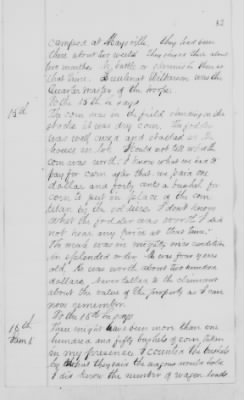 42
camped at Maysville. They had been
there about two weeks. They stayed there about
two months. No battle or skirmish there at
that time. Lieutenant Wilkinson was the
Quarter master of the troops.
15th To the 15th he says
The corn was in the field standing in the
shocks it was dry corn. The fodder
was well cured and stacked at the
house in lot. I could not tell what the
corn was worth: I know what we had to
pay for corn after that we paid one
dollar and forty cents a bushel for
corn to put in place of the corn
taken by the soldiers. I dont know
what the fodder was worth I did
not hear any price at that time.
The mule was in mighty nice condition
in splendid order. He was four years
old. He was worth about two hundred
dollars. Never talked to the claimant
about the value of the property as I can
now remember.
16th To the 16th he says
Item 1 There might have been more than one
hundred and fifty bushels of corn taken
in my presence. I counted the bushels
by what they said the wagons would hold
I did know the number of wagon loads